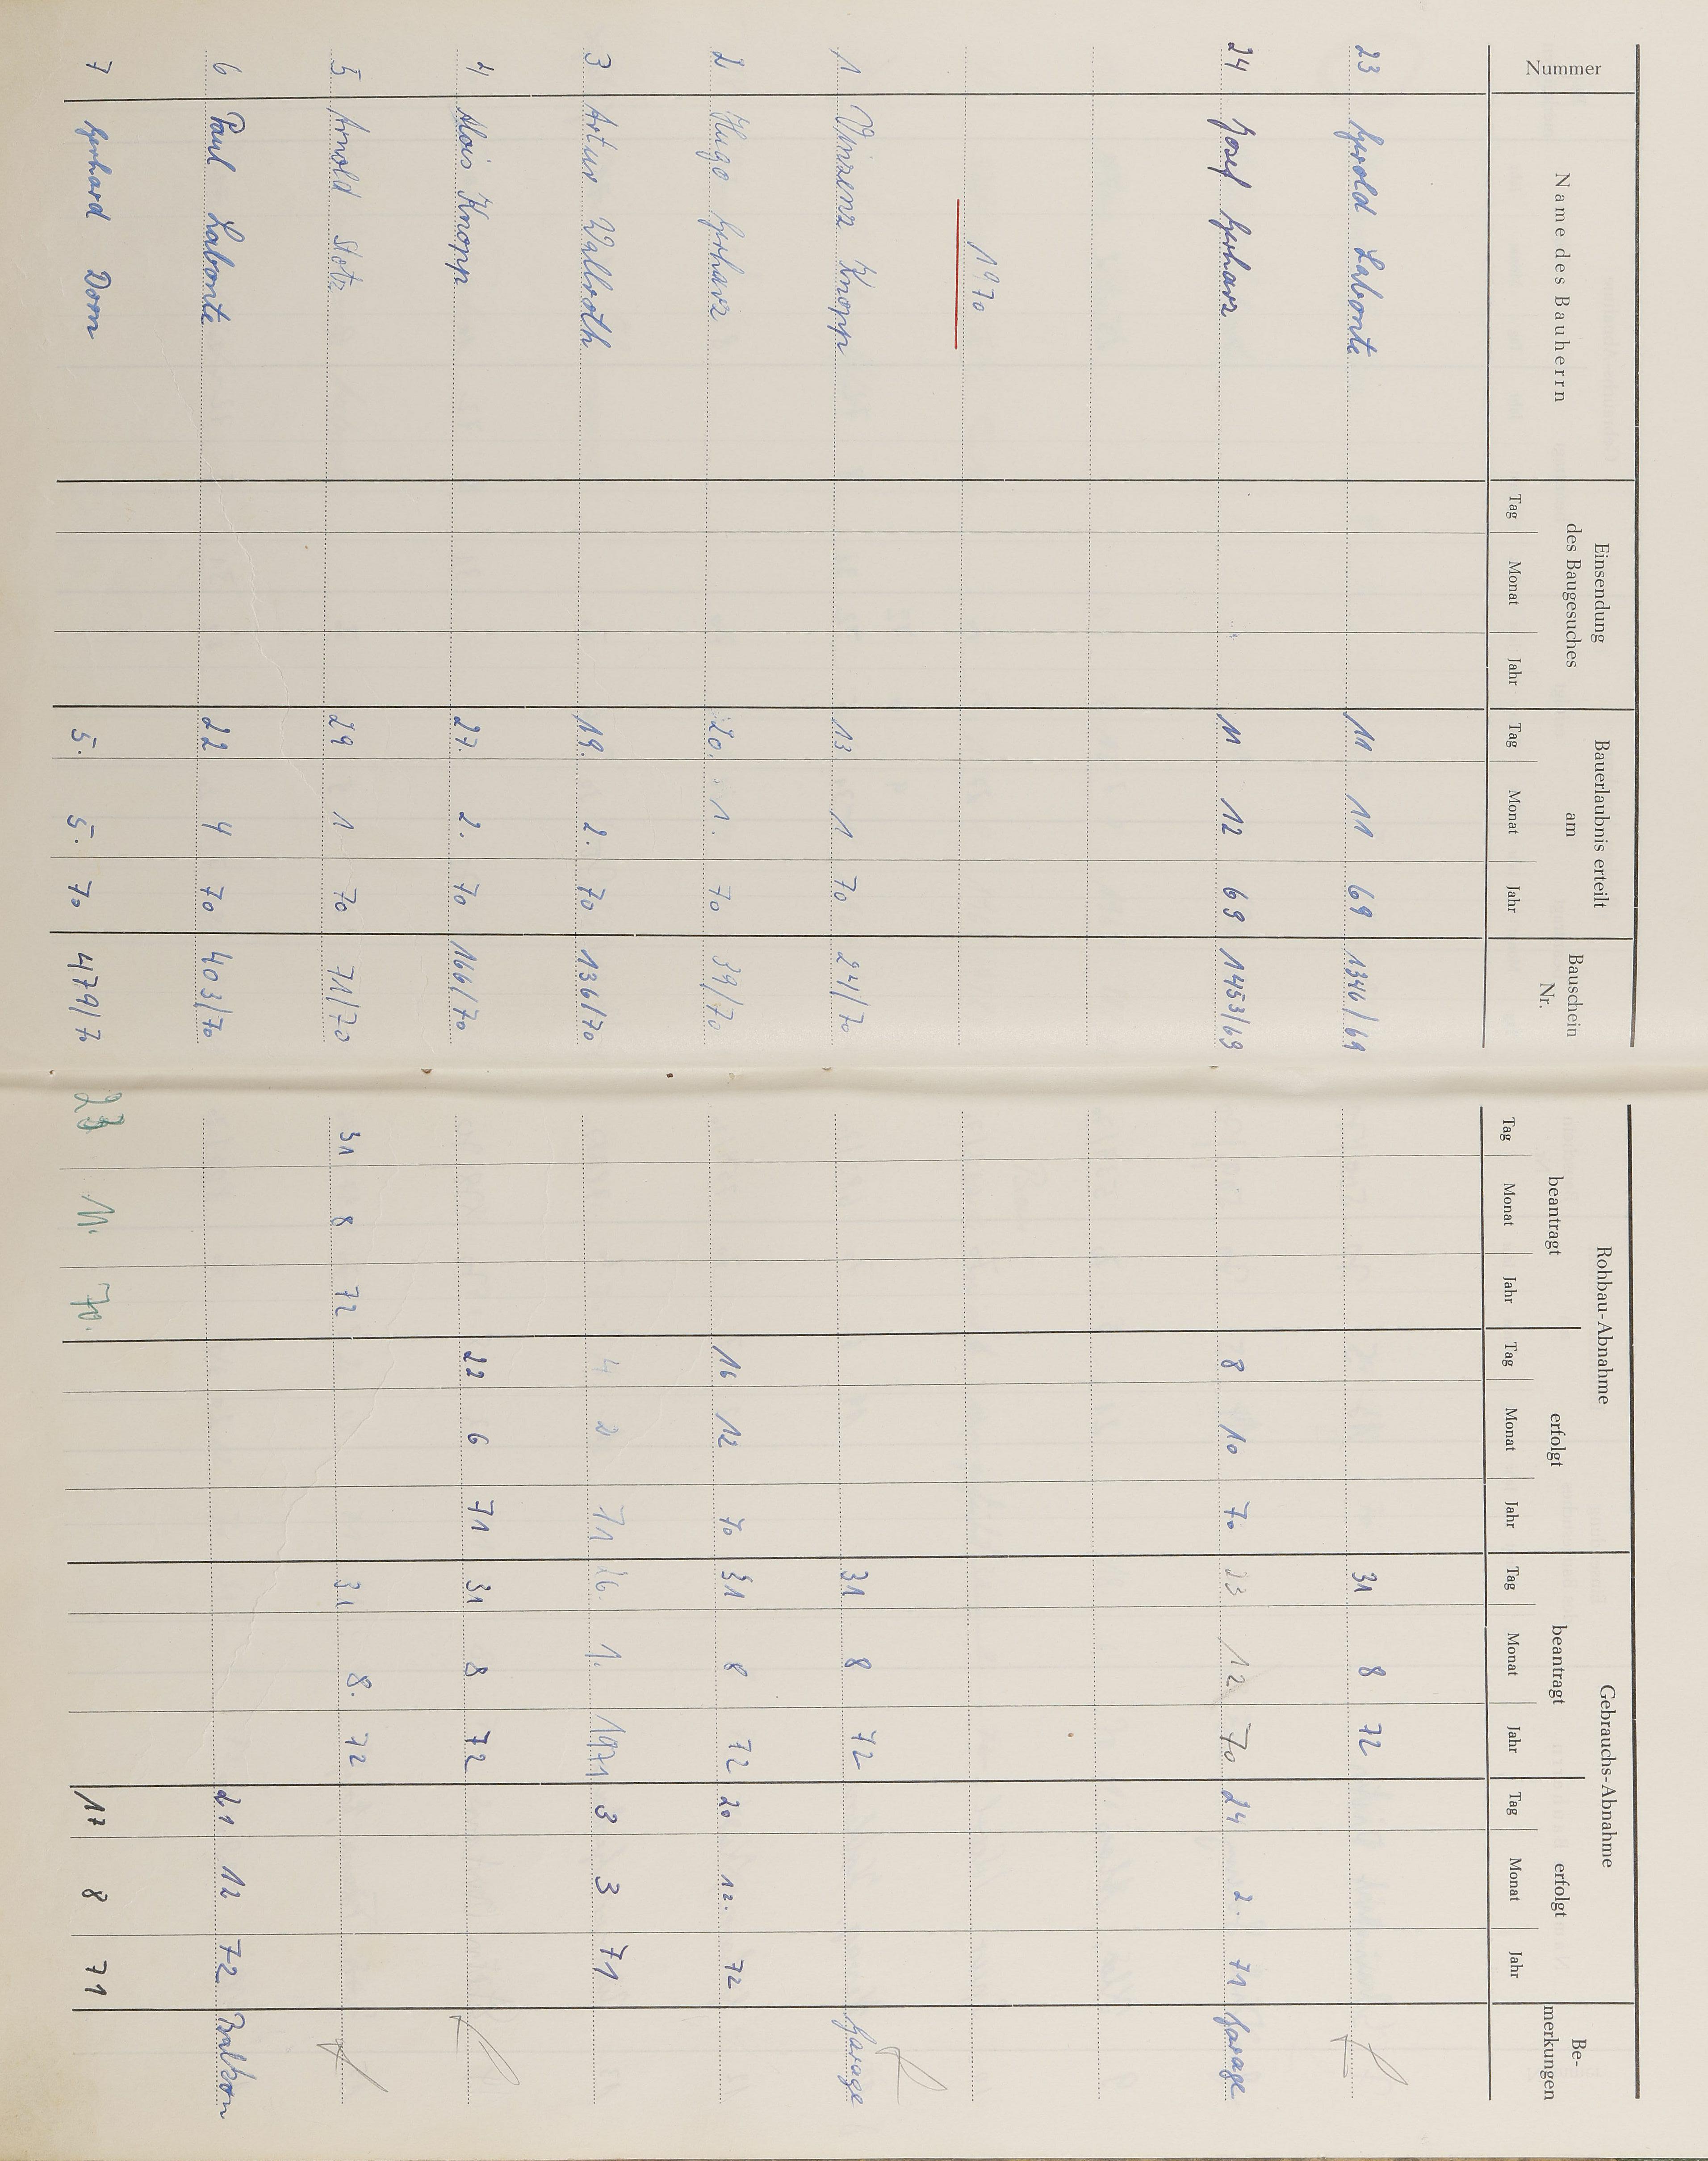 Nummer Name des Bauherrn Einsendung des Baugesuches Bauerlaubnis erteilt am Bauschein Nr. Rohbau-Abnahme Gebrauchs-Abnahme Be-merkungen
beantragt erfolgt beantragt erfolgt
Tag Monat Jahr Tag Monat Jahr Tag Monat Jahr Tag Monat Jahr Tag Monat Jahr Tag Monat Jahr
23 Gerold Labonte 11 11 69 1346/69 31 8 72
24 Josef Gerharz 11 12 69 1453/69 8 10 70 23 12 70 24 2. 71 Garage
1970
1 Vinzenz Knopp 13 1 70 24/70 31 8 72 Garage
2 Hugo Gerharz 20. 1. 70 39/70 16 12 70 31 8 72 20 12. 72
3 Artur Wallroth 19. 2. 70 136/70 4 2 71 26. 1. 1971 3 3 71
4 Alois Knopp 27. 2. 70 166/70 22 6 71 31 8 72
5 Arnold 29 1 70 71/70 31 8 72 31 8. 72
6 Paul Labonte 22 4 70 403/70 21 12 72 Balkon
7 Gerhard Dorn 5. 5. 70 479/70 23 11. 70. 17 8 71